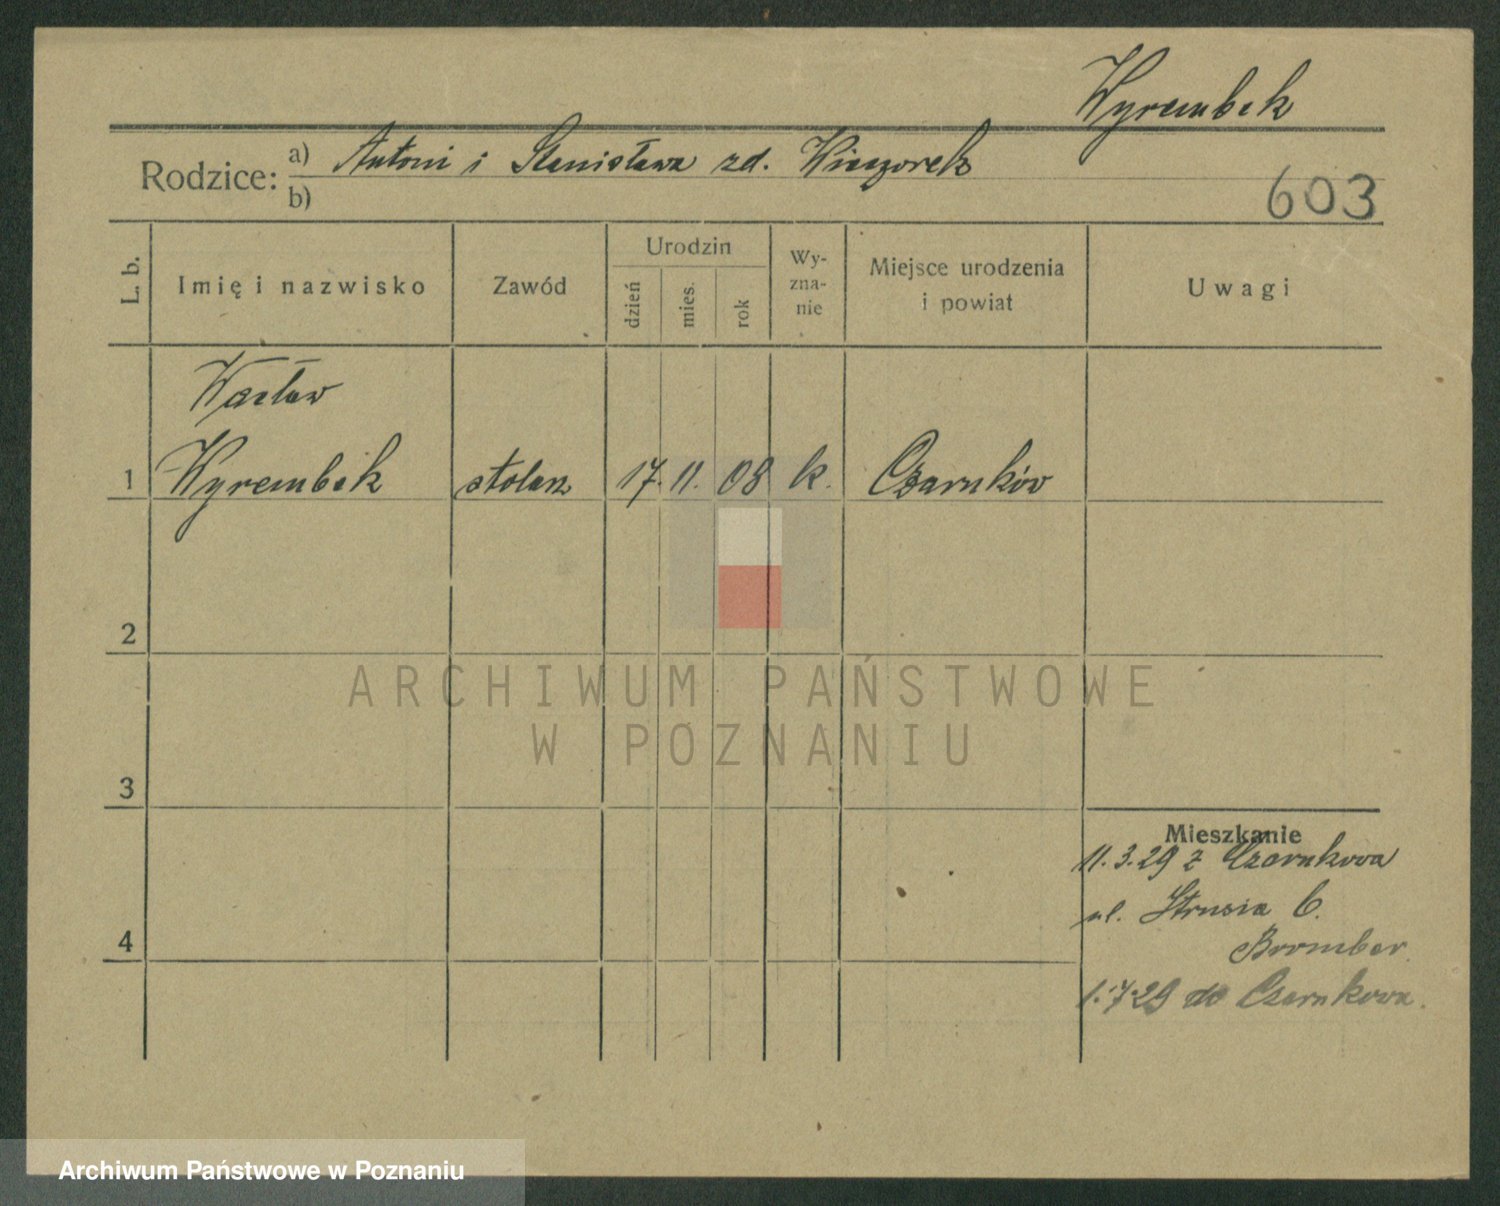 Wyrembek
Rodzice: a) Antoni i Stanisława zd. Wieczorek
b)
603
L. b.
Imię i nazwisko
Zawód
Urodzin
dzień
mies.
rok
Wy-
zna-
nie
Miejsce urodzenia
i powiat
Uwagi
Wacław
1 Wyrembek stolarz 17. 11. 08 k. Czarnków
2
ARCHIWUM PAŃSTWOWE
W POZNANIU
3
Mieszkanie
11.3.29 z Czarnkowa
ul. Strusia 6.
4
1.7.29 do Czarnkowa.
Archiwum Państwowe w Poznaniu